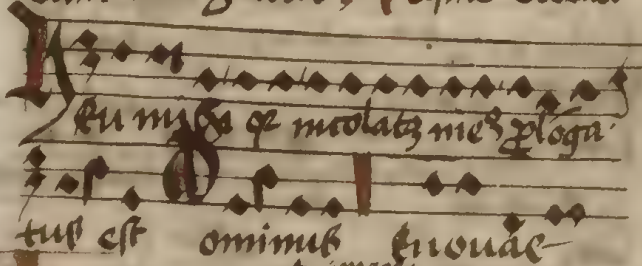 Heu michi qr incolatꝫ meꝰ ꝓlōga
tus est Dominus Euouae